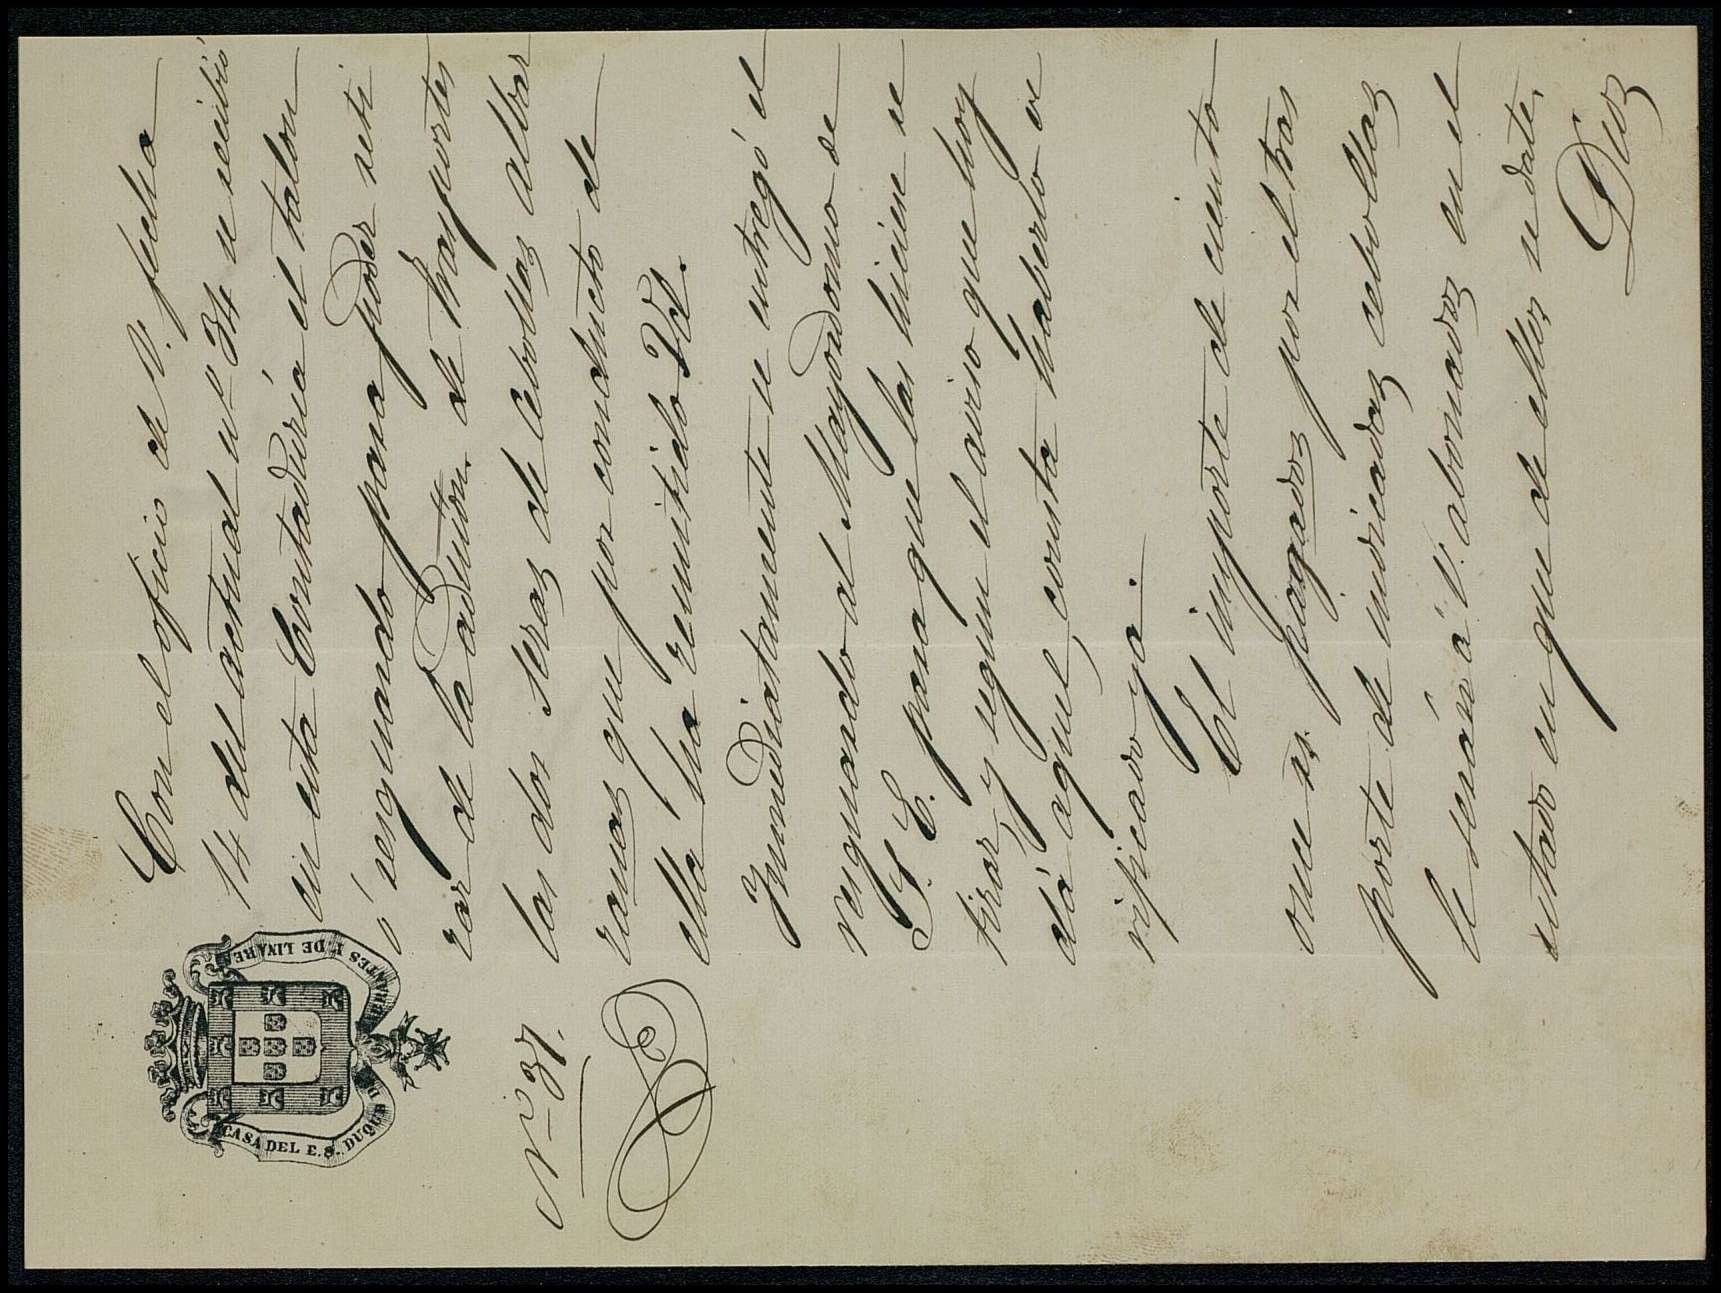 CASA DEL E. S. DUQUE D ABRANTES I. DE LINARES
Nº 37.
Con el oficio de V. fecha
14 del actual nº 34 se recibió
en esta Contaduría el talon
ó resguardo para poder reti
rar de la admtrn. de trasportes
las dos seras de cebollas albar
ranas que por conducto de
ella ha remitido Vd.
Immediatamente se entregó el
resguardo al Mayordomo de
S. E. para que las hiciese re
tirar y segun el aviso que hoy
dá aquel, consta haberlo ve
rificado ya.
El importe de ciento
once rs. pagados por el tras
porte de indicadas cebollas
le serán á V. abonados en el
estado en que de ellos se date.
Dios